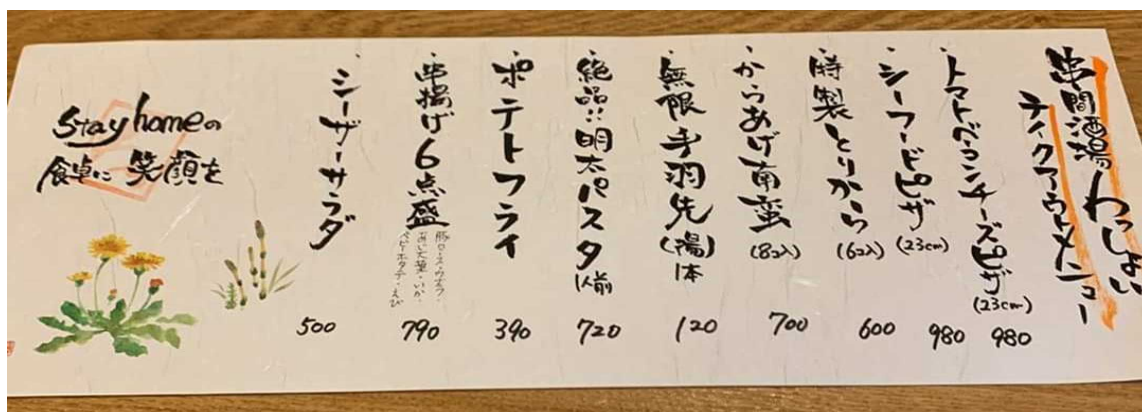 串間酒場 わっしょい
テイクアウトメニュー
・トマトベーコンチーズピザ(23cm) 980
・シーフードピザ(23cm) 980
・特製とりから(6コ入) 600
・からあげ南蛮(8コ入) 700
・無限手羽先(揚)1本 120
・絶品!!明太パスタ1人前 720
・ポテトフライ 390
・串揚げ6点盛 790
豚ロース・ウズラ・
あじ大葉・いか・
ベビーホタテ・えび
・シーザーサラダ 500
Stay homeの
食卓に 笑顔を